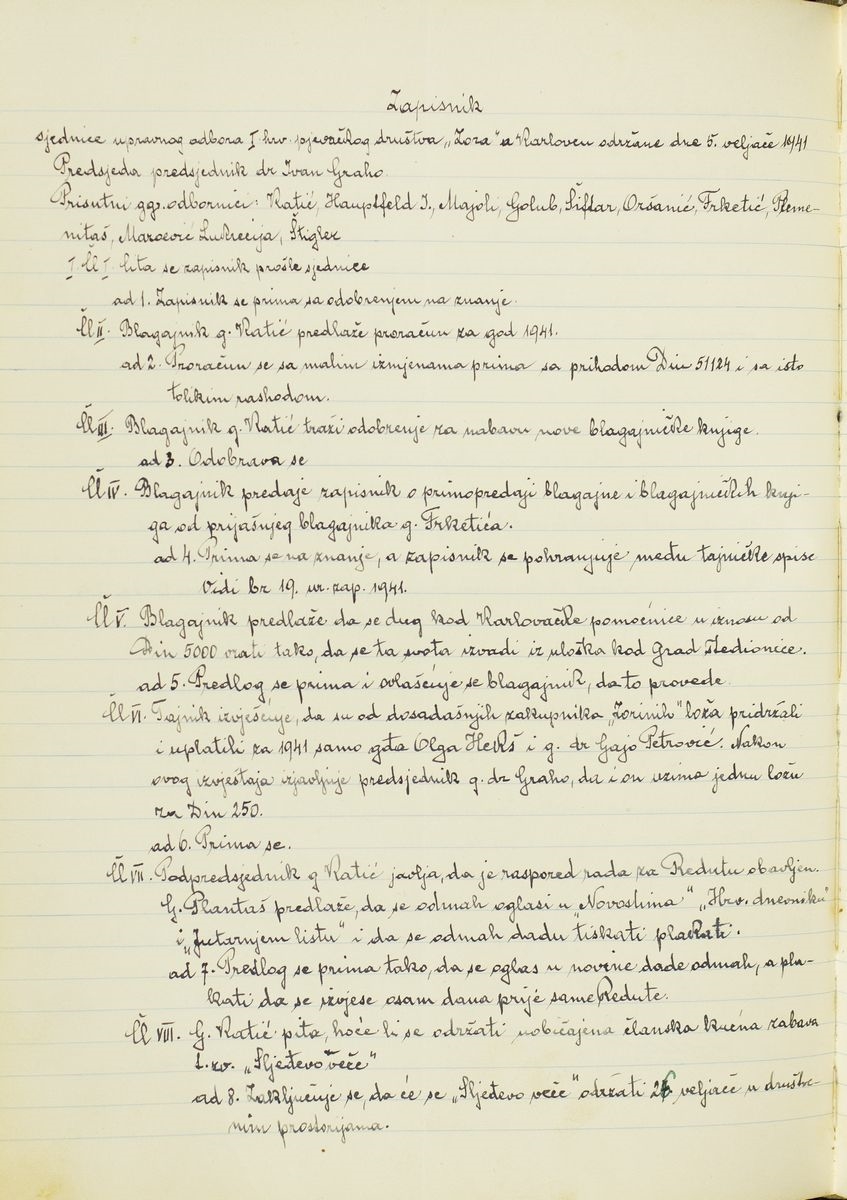 Zapisnik
sjednice upravnog odbora I hrv. pjevačkog društva „Zora" u Karlovcu održane dne 5. veljače 1941
Predsjeda predsjednik dr Ivan Graho.
Prisutni ggs. odbornici: Katić, Hauptfeld I., Majoli, Golub, Šiftar, Oršanić, Frketić, Pleme-
nitaš, Marčević Lukrecija, Štigler
I Čl I. čita se zapisnik prošle sjednice
ad 1. Zapisnik se prima sa odobrenjem na znanje.
Čl II. Blagajnik g. Katić predlaže proračun za god 1941.
ad 2. Proračun se sa malim izmjenama prima sa prihodom Din 51124 i sa isto
tolikim rashodom.
Čl III. Blagajnik g. Katić traži odobrenje za nabavu nove blagajničke knjige.
ad 3. Odobrava se
Čl IV. Blagajnik predaje zapisnik o primopredaji blagajne i blagajničkih knji-
ga od prijašnjeg blagajnika g. Frketića.
ad 4. Prima se na znanje, a zapisnik se pohranjuje među tajničke spise
Vidi br 19. ur. zap. 1941.
Čl V. Blagajnik predlaže da se dug kod Karlovačke pomoćnice u iznosu od
Din 5000 vrati tako, da se ta svota izvadi iz uloška kod Grad štedionice.
ad 5. Predlog se prima i ovlašćuje se blagajnik, da to provede.
Čl VI. Tajnik izvješćuje, da su od dosadašnjih zakupnika „Zorinih" loža pridržali
i uplatili za 1941 samo gđa Olga Herš i g. dr Gajo Petrović. Nakon
ovog izvještaja izjavljuje predsjednik g. dr Graho, da i on uzima jednu ložu
za Din 250.
ad 6. Prima se.
Čl VII. Podpredsjednik g Katić javlja, da je raspored rada za Redutu obavljen.
G. Plantaš predlaže, da se odmah oglasi u „Novostima" „Hrv. dnevniku"
i „Jutarnjem listu" i da se odmah dadu tiskati plakati.
ad 7. Predlog se prima tako, da se oglas u novine dade odmah, a pla-
kati da se izvjese osam dana prije same Redute.
Čl VIII. G. Katić pita, hoće li se održati uobičajena članska kućna zabava
t. zv. „Sljeđevo veče"
ad 8. Zaključuje se, da će se „Sljeđevo veče" održati 26 veljače u društve-
nim prostorijama.